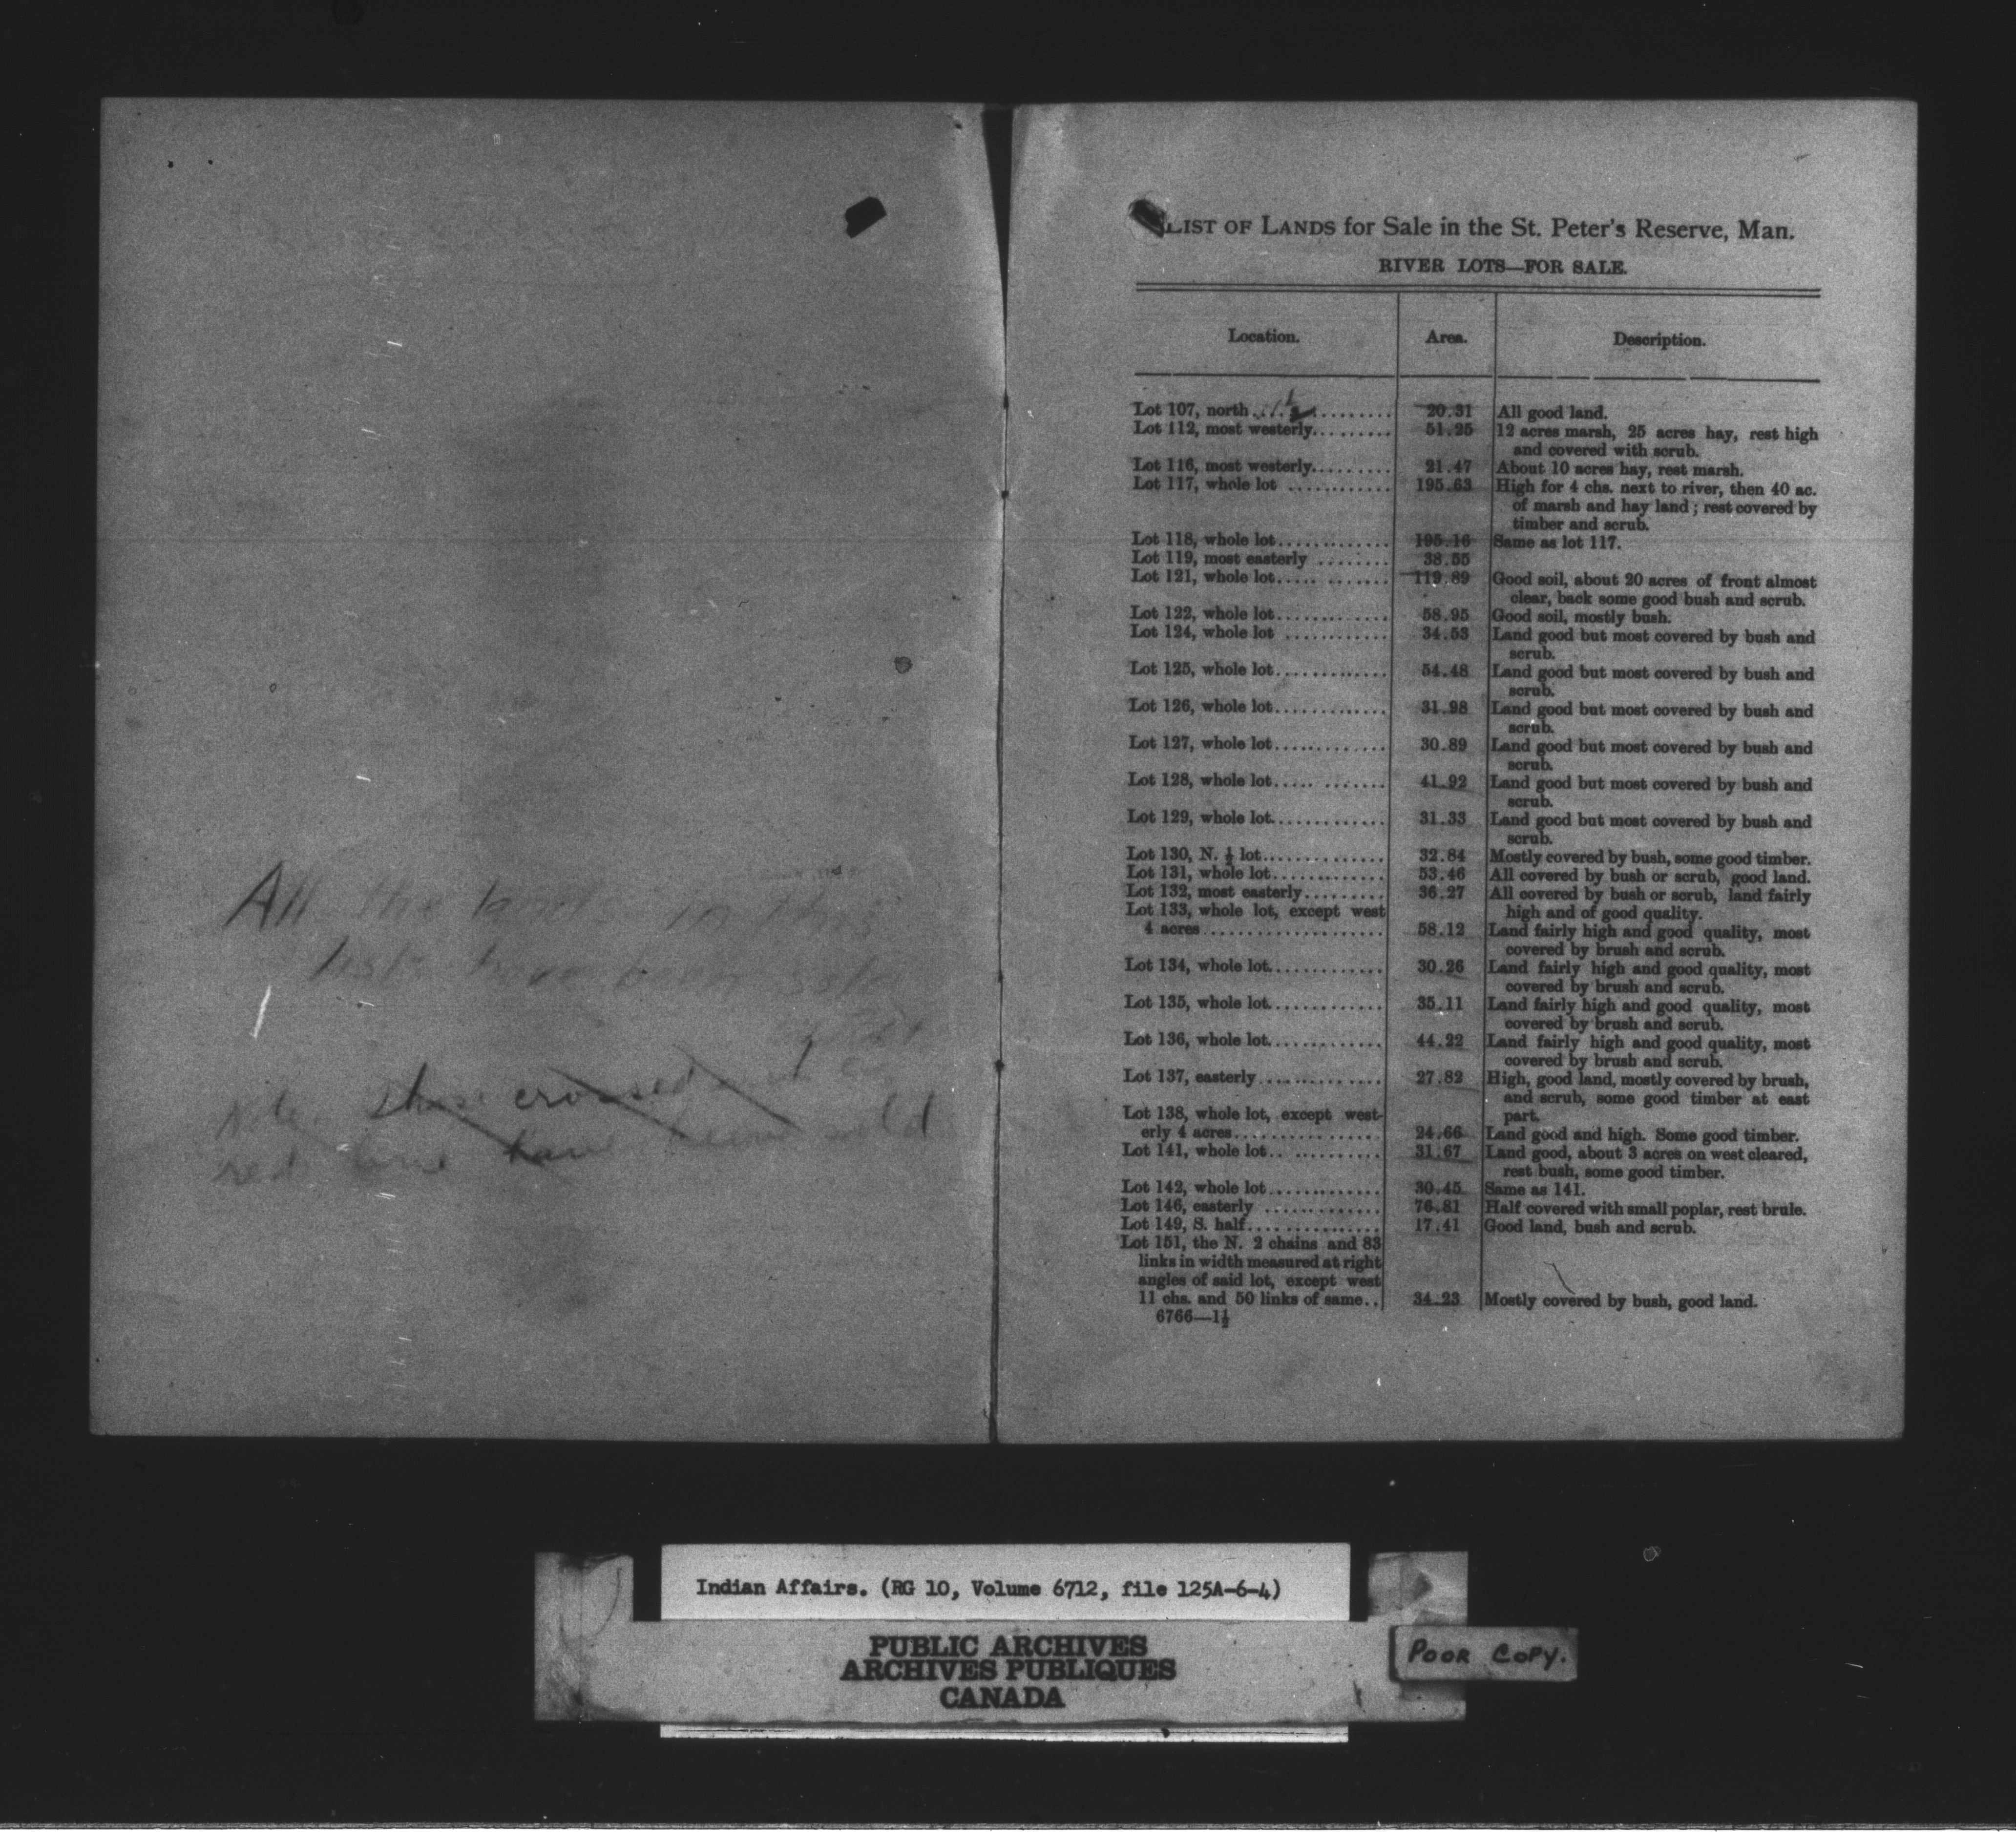 All the land in this
list have been sold
Note. Those crossed
red line have been sold
LIST OF LANDS for Sale in the St. Peter's Reserve, Man.
RIVER LOTS—FOR SALE.
Location. Area. Description.
Lot 107, north ½ 20.31 All good land.
Lot 112, most westerly......... 51.25 12 acres marsh, 25 acres hay, rest high
and covered with scrub.
Lot 116, most westerly......... 21.47 About 10 acres hay, rest marsh.
Lot 117, whole lot ............ 195.63 High for 4 chs. next to river, then 40 ac.
of marsh and hay land ; rest covered by
timber and scrub.
Lot 118, whole lot............. 195.16 Same as lot 117.
Lot 119, most easterly ........ 38.55
Lot 121, whole lot............. 119.89 Good soil, about 20 acres of front almost
clear, back some good bush and scrub.
Lot 122, whole lot............. 58.95 Good soil, mostly bush.
Lot 124, whole lot ............ 34.53 Land good but most covered by bush and
scrub.
Lot 125, whole lot............. 54.48 Land good but most covered by bush and
scrub.
Lot 126, whole lot............. 31.98 Land good but most covered by bush and
scrub.
Lot 127, whole lot............. 30.89 Land good but most covered by bush and
scrub.
Lot 128, whole lot............. 41.92 Land good but most covered by bush and
scrub.
Lot 129, whole lot............. 31.33 Land good but most covered by bush and
scrub.
Lot 130, N. ½ lot.............. 32.84 Mostly covered by bush, some good timber.
Lot 131, whole lot............. 53.46 All covered by bush or scrub, good land.
Lot 132, most easterly......... 36.27 All covered by bush or scrub, land fairly
high and of good quality.
Lot 133, whole lot, except west
4 acres.................... 58.12 Land fairly high and good quality, most
covered by brush and scrub.
Lot 134, whole lot............. 30.26 Land fairly high and good quality, most
covered by brush and scrub.
Lot 135, whole lot............. 35.11 Land fairly high and good quality, most
covered by brush and scrub.
Lot 136, whole lot............. 44.22 Land fairly high and good quality, most
covered by brush and scrub.
Lot 137, easterly.............. 27.82 High, good land, mostly covered by brush,
and scrub, some good timber at east
part.
Lot 138, whole lot, except west-
erly 4 acres................ 24.66 Land good and high. Some good timber.
Lot 141, whole lot............. 31.67 Land good, about 3 acres on west cleared,
rest bush, some good timber.
Lot 142, whole lot............. 30.45 Same as 141.
Lot 146, easterly ............. 76.81 Half covered with small poplar, rest brule.
Lot 149, S. half............... 17.41 Good land, bush and scrub.
Lot 151, the N. 2 chains and 83
links in width measured at right
angles of said lot, except west
11 chs. and 50 links of same.. 34.23 Mostly covered by bush, good land.
6766—1½
Indian Affairs. (RG 10, Volume 6712, file 125A-6-4)
PUBLIC ARCHIVES
ARCHIVES PUBLIQUES
CANADA
POOR COPY.